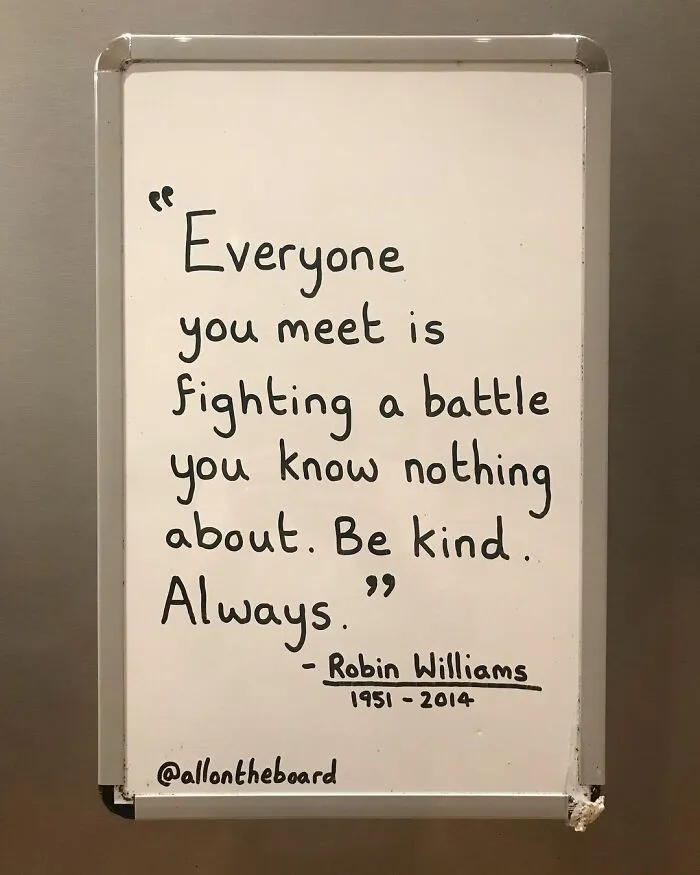 "Everyone
you meet is
fighting a battle
you know nothing
about. Be kind.
Always."
- Robin Williams
1951 - 2014
@allontheboard